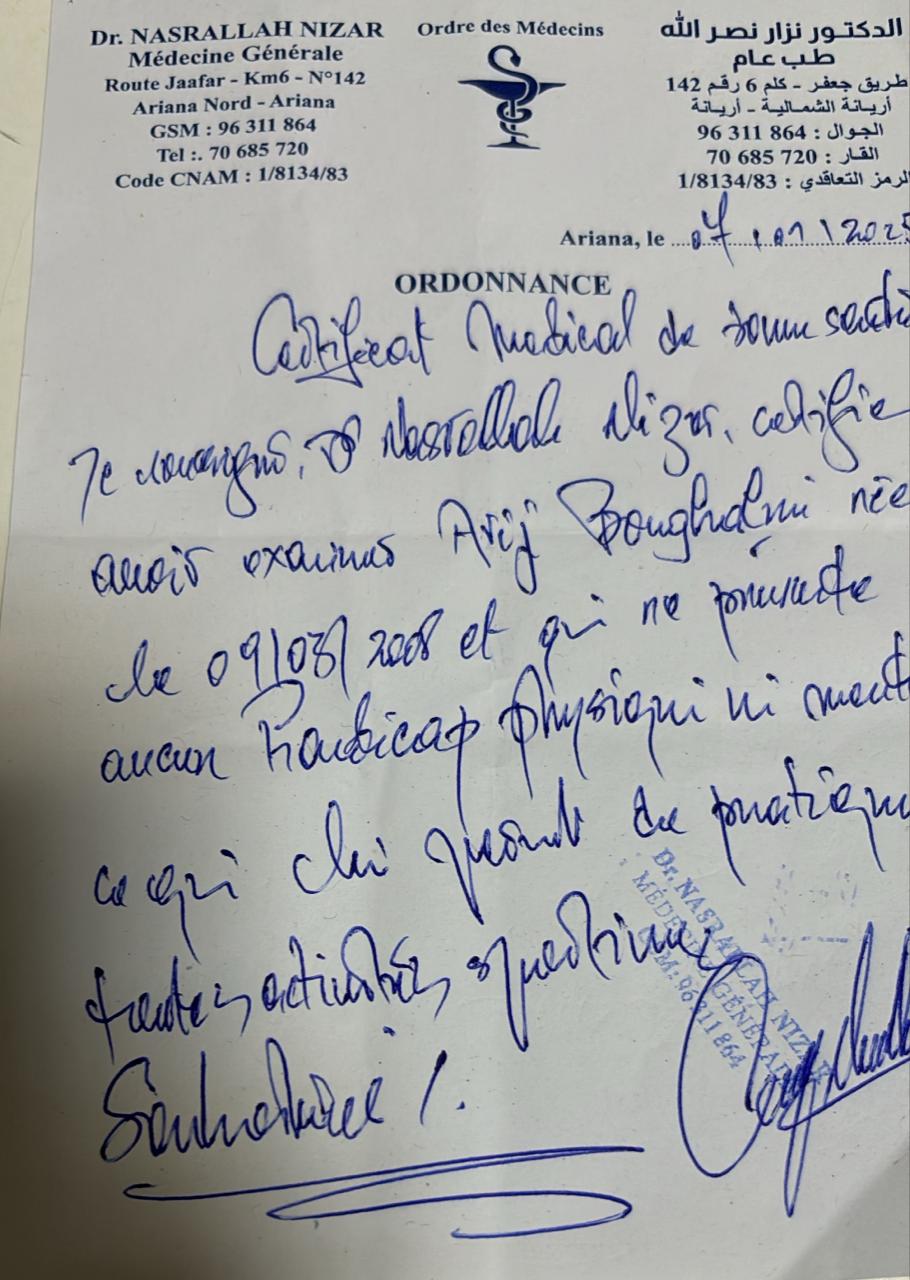 Dr. NASRALLAH NIZAR
Médecine Générale
Route Jaafar - Km6 - N°142
Ariana Nord - Ariana
GSM : 96 311 864
Tel :. 70 685 720
Code CNAM : 1/8134/83
Ordre des Médecins
الدكتور نزار نصر الله
طب عام
طريق جعفر - كلم 6 رقم 142
أريانة الشمالية - أريانة
الجوال : 864 311 96
القار : 720 685 70
الرمز التعاقدي : 1/8134/83
Ariana, le 07/01/2025
ORDONNANCE
Certificat Medical de bonne santé
Je soussigné, Dr Nasrallah Nizar, certifie
avoir examiner Arij Boughalmi née
le 09/03/2008 et qui ne présente
aucun handicap physique ni ment
ce qui lui permet de pratique
toutes activités sportive
Souhaitée /.
Dr. NASRALLAH NIZAR
MÉDECINE GÉNÉRALE
GSM: 96 311 864